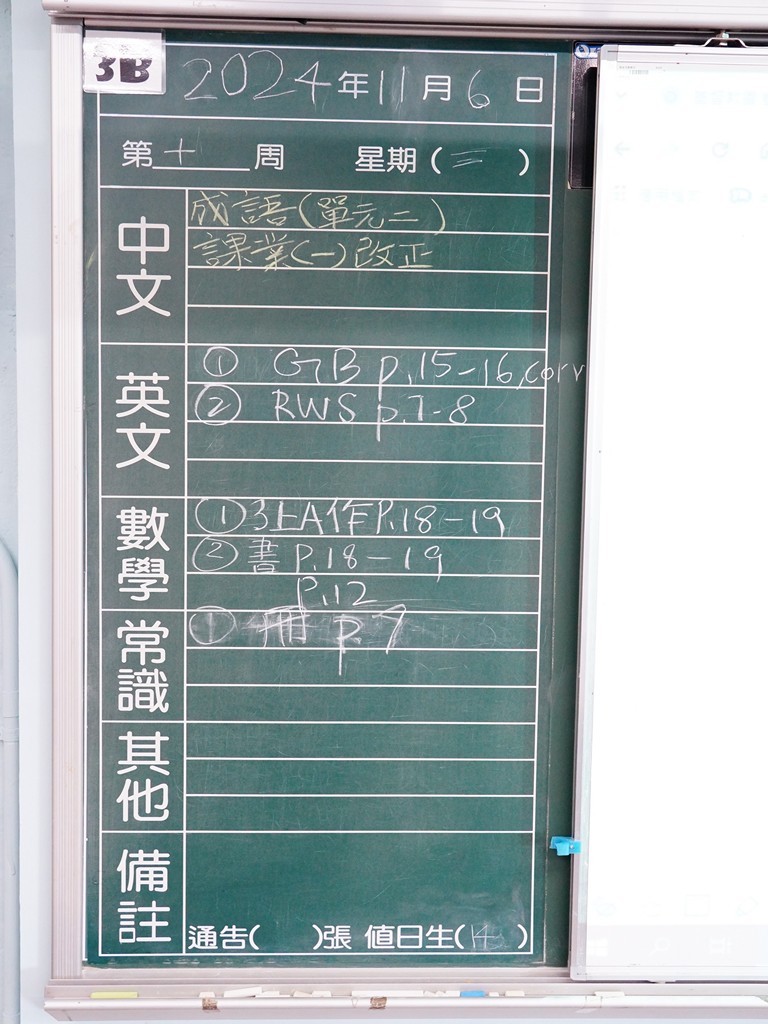 3B
2024年11月6日
第十周 星期(三)
中文
成語(單元二)
課業(一)改正
英文
① GB p.15-16, corr
② RWS p.7-8
數學
①3上A作P.18-19
②書P.18-19
P.12
常識
① p7
其他
備註
通告( )張 值日生(14)